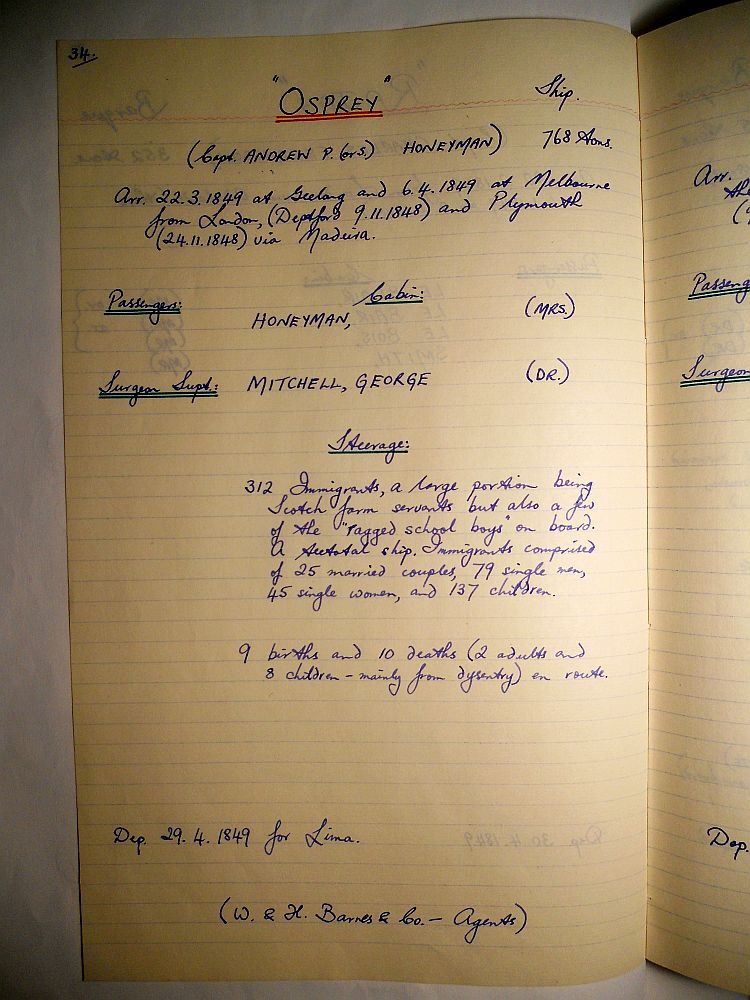 34.
"OSPREY" Ship.
(Capt. ANDREW P. (or S.) HONEYMAN) 768 tons.
Arr. 22.3.1849 at Geelong and 6.4.1849 at Melbourne
from London, (Deptford 9.11.1848) and Plymouth
(24.11.1848) via Madeira.
Passengers: Cabin:
HONEYMAN, (MRS.)
Surgeon Supt.: MITCHELL, GEORGE (DR.)
Steerage:
312 Immigrants, a large portion being
Scotch farm servants but also a few
of the "ragged school boys" on board.
A teetotal ship. Immigrants comprised
of 25 married couples, 79 single men,
45 single women, and 137 children.
9 births and 10 deaths (2 adults and
8 children - mainly from dysentry) en route.
Dep. 29.4.1849 for Lima.
(W. & H. Barnes & Co. - Agents)
Arr.
the
(
Passeng
Surgeon
Dep.